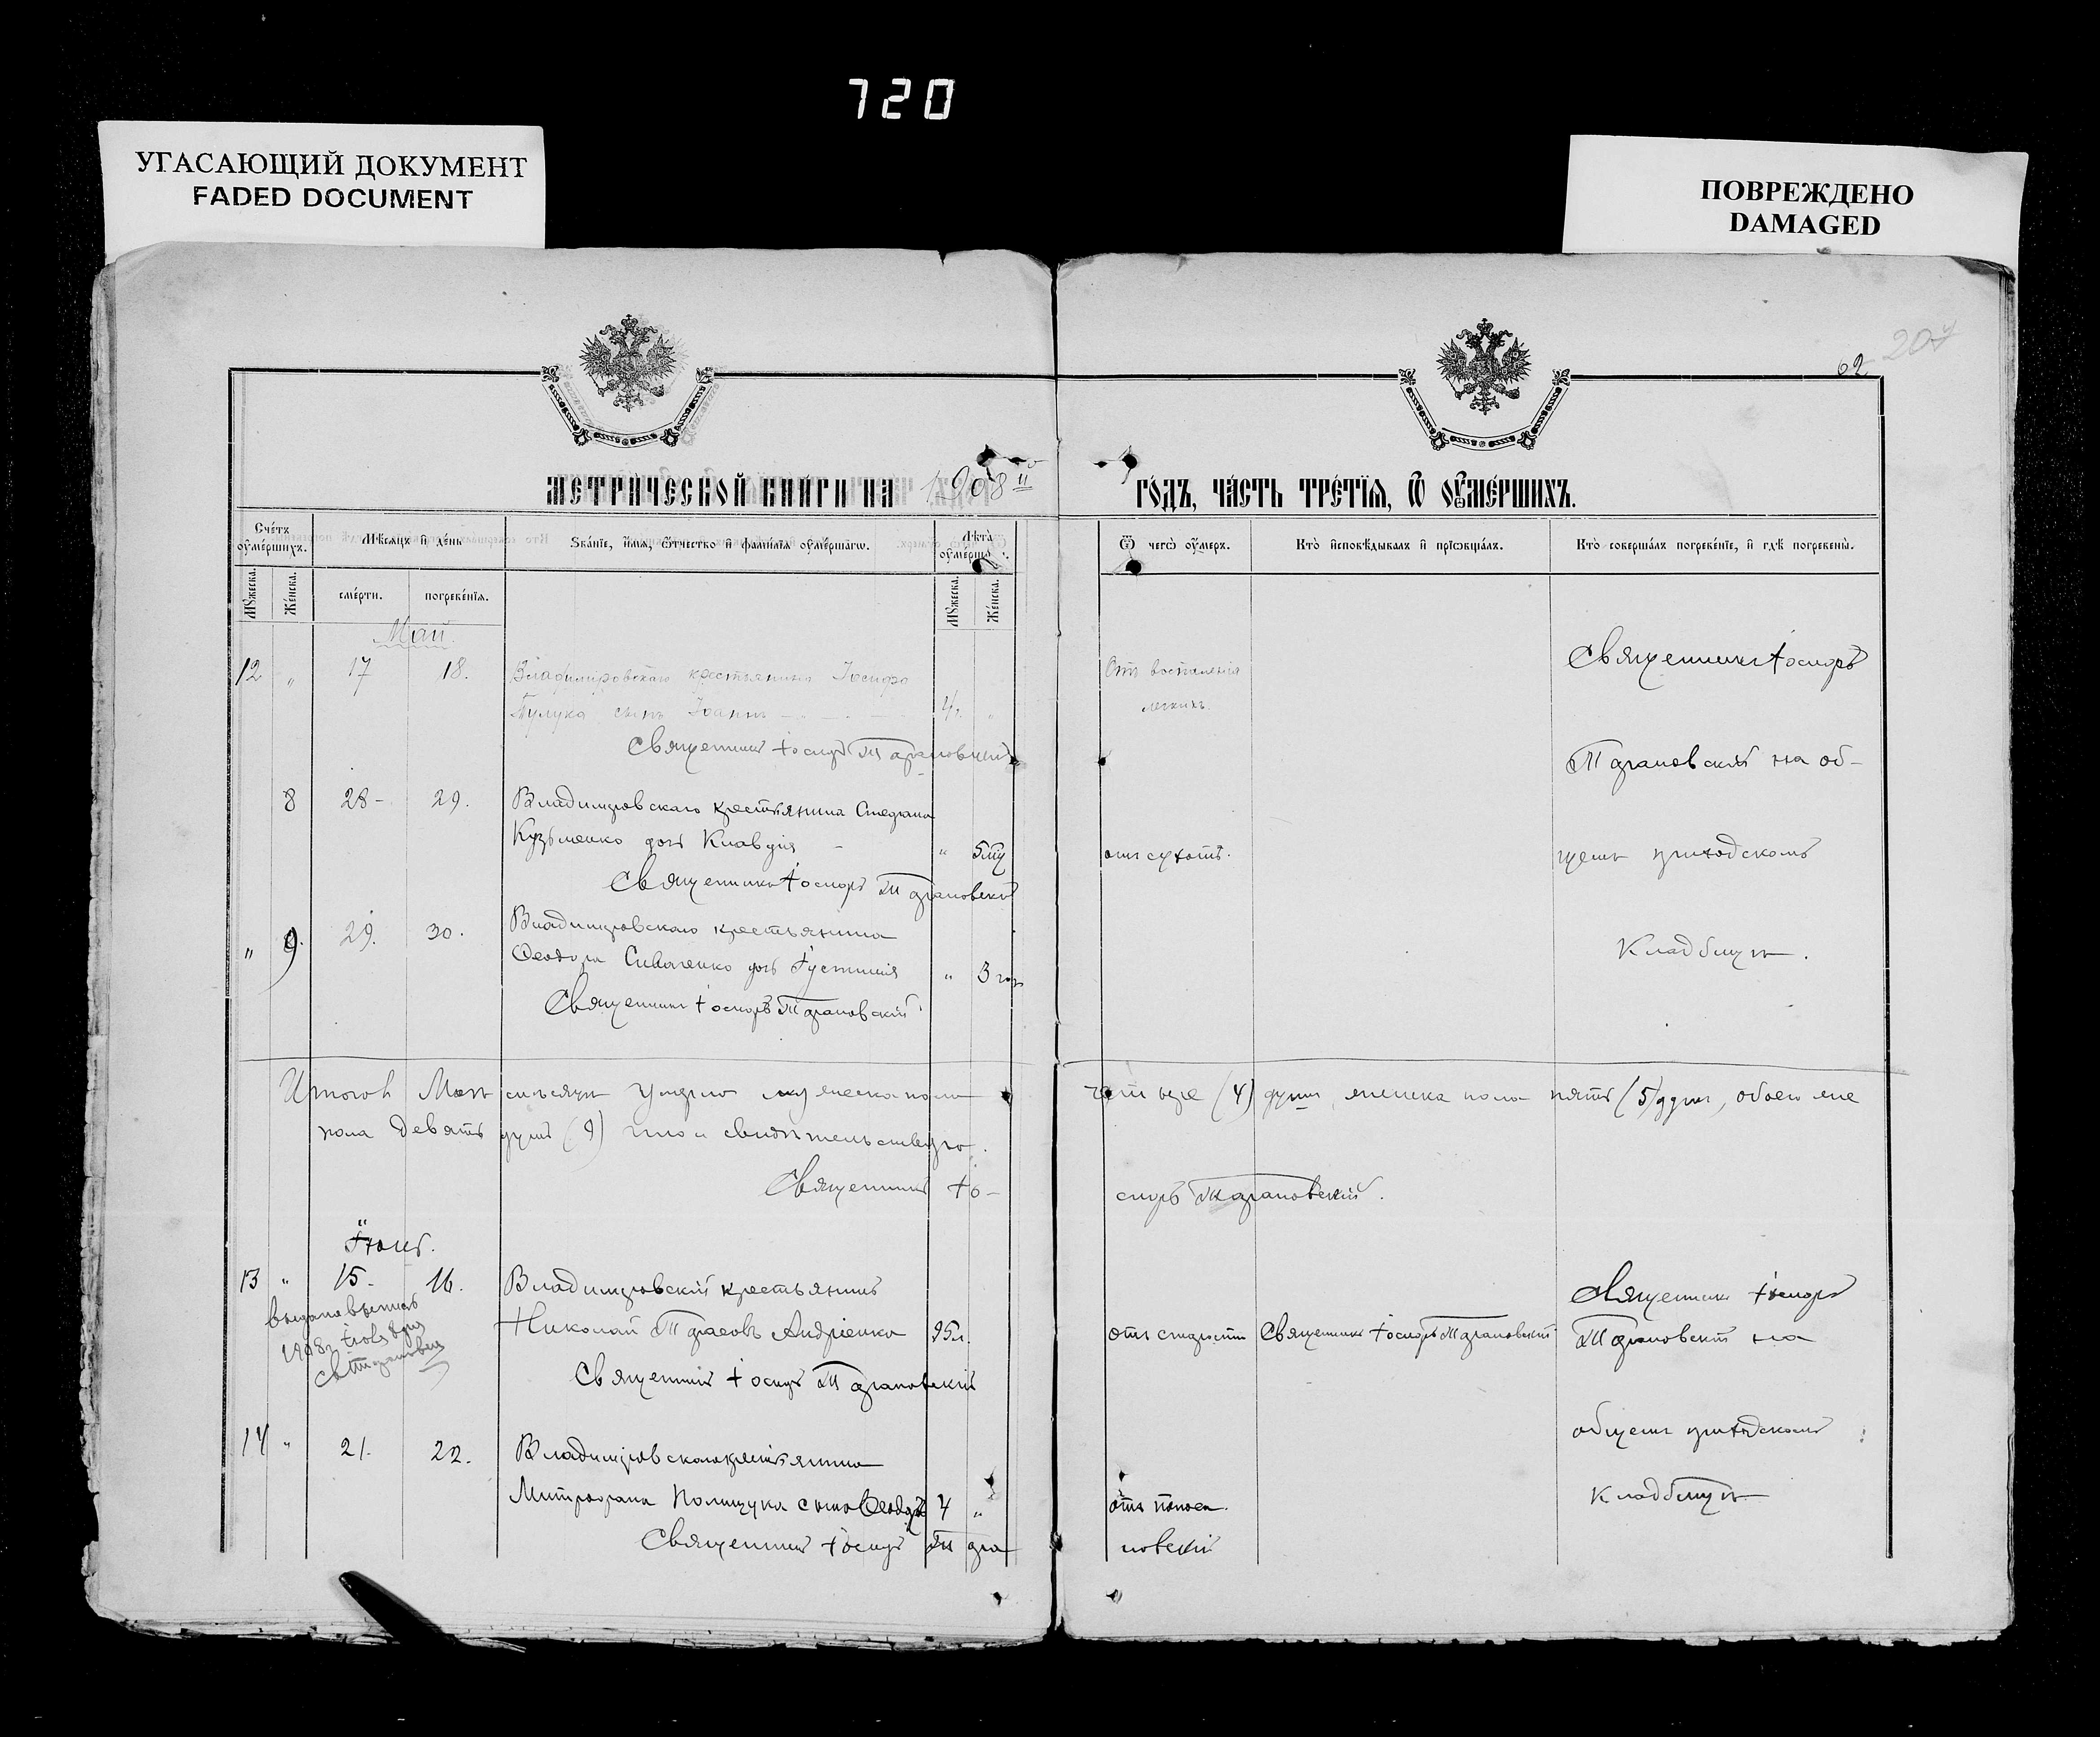 720
УГАСАЮЩИЙ ДОКУМЕНТ
FADED DOCUMENT
ПОВРЕЖДЕНО
DAMAGED
207
62
МЕТРИЧЕСКОЙ КНИГИ НА 1908 ГОДЪ, ЧАСТЬ ТРЕТІЯ, Ѿ ОУМЕРШИХЪ.
Счетъ оумершихъ.
Мѣсяцъ и день
Званіе, имя, ѿтчество и фамилія оумершагѡ.
Лѣта оумерша
Ѿ чегѡ оумеръ.
Кто исповѣдывалъ и пріѡбщалъ.
Кто совершалъ погребеніе, и гдѣ погребены.
Мужеска.
Женска.
смерти.
погребенія.
Мужеска.
Женска.
Май
12 " 17 18. Владиміровскаго крестьянина Іосифа
сынъ Іоаннъ 4. "
Отъ воспаленія
легкихъ.
Священникъ Іосифъ Тарановскій
Священникъ Іосифъ
Тарановскій на об-
8 28- 29. Владимировскаго крестьянина Стефана
Кузьменко дочь Клавдія - "
отъ сухотъ.
щемъ приходскомъ
Священникъ Іосифъ Тарановскій
" 9. 29. 30. Владимировскаго крестьянина
Феодора дочь Іустинія " 3
Кладбищѣ.
Священникъ Іосифъ Тарановскій
Итого въ Маѣ мѣсяцѣ умерло мужеска пола четыре (4) души, женска пола пять (5) душъ, обоего же
пола девять душъ (9) что и свидѣтельствую.
Священникъ Іо-
сифъ Тарановскій.
Іюнь.
13 " 15. 16. Владимировскій крестьянинъ
Николай Тарасовъ Андріенко 95л.
отъ старости
Священникъ Іосифъ Тарановскій
Священникъ Іосифъ
Тарановскій на
выдана выпись
1908г.
Священникъ Іосифъ Тарановскій
общемъ приходскомъ
14 " 21. 22. Владимировскаго крестьянина
Митрофана Полищука сынъ Феодоръ 4 "
отъ поноса.
Кладбищѣ
Священникъ Іосифъ Тара
новскій